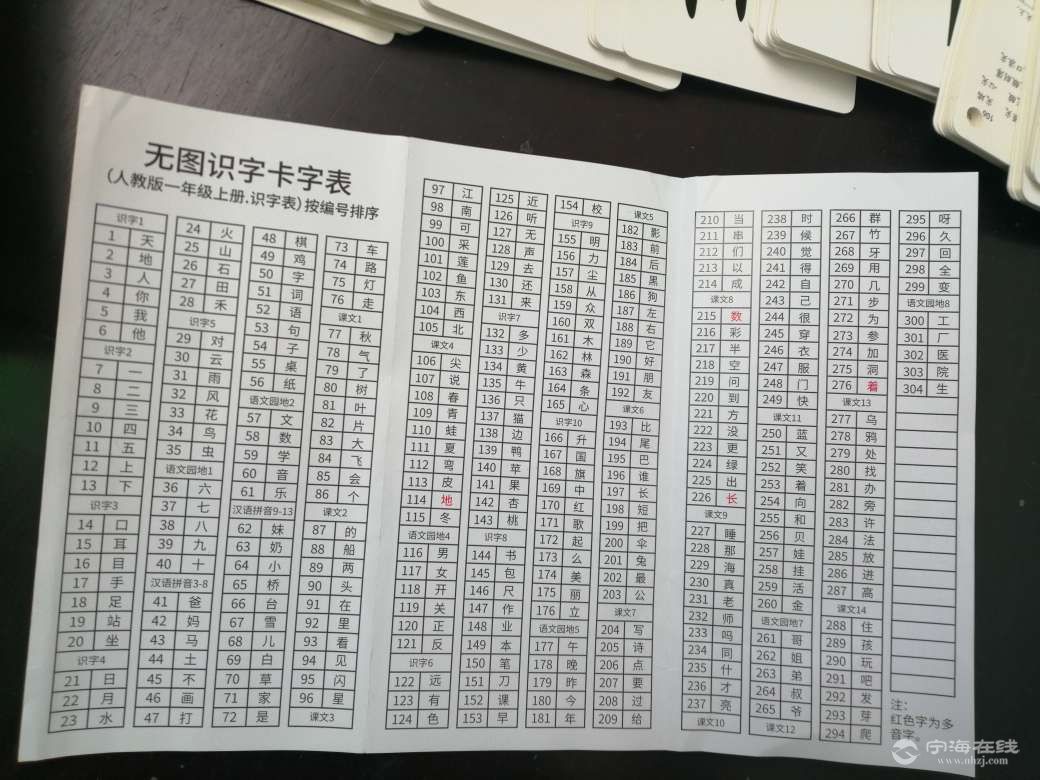 无图识字卡字表
(人教版一年级上册.识字表)按编号排序
识字1
1 天
2 地
3 人
4 你
5 我
6 他
识字2
7 一
8 二
9 三
10 四
11 五
12 上
13 下
识字3
14 口
15 耳
16 目
17 手
18 足
19 站
20 坐
识字4
21 日
22 月
23 水
24 火
25 山
26 石
27 田
28 禾
识字5
29 对
30 云
31 雨
32 风
33 花
34 鸟
35 虫
语文园地1
36 六
37 七
38 八
39 九
40 十
汉语拼音3-8
41 爸
42 妈
43 马
44 土
45 不
46 画
47 打
48 棋
49 鸡
50 字
51 词
52 语
53 句
54 子
55 桌
56 纸
语文园地2
57 文
58 数
59 学
60 音
61 乐
汉语拼音9-13
62 妹
63 奶
64 小
65 桥
66 台
67 雪
68 儿
69 白
70 草
71 家
72 是
73 车
74 路
75 灯
76 走
课文1
77 秋
78 气
79 了
80 树
81 叶
82 片
83 大
84 飞
85 会
86 个
课文2
87 的
88 船
89 两
90 头
91 在
92 里
93 看
94 见
95 闪
96 星
课文3
97 江
98 南
99 可
100 采
101 莲
102 鱼
103 东
104 西
105 北
课文4
106 尖
107 说
108 春
109 青
110 蛙
111 夏
112 弯
113 皮
114 地
115 冬
语文园地4
116 男
117 女
118 开
119 关
120 正
121 反
识字6
122 远
123 有
124 色
125 近
126 听
127 无
128 声
129 去
130 还
131 来
识字7
132 多
133 少
134 黄
135 牛
136 只
137 猫
138 边
139 鸭
140 苹
141 果
142 杏
143 桃
识字8
144 书
145 包
146 尺
147 作
148 业
149 本
150 笔
151 刀
152 课
153 早
154 校
识字9
155 明
156 力
157 尘
158 从
159 众
160 双
161 木
162 林
163 森
164 条
165 心
识字10
166 升
167 国
168 旗
169 中
170 红
171 歌
172 起
173 么
174 美
175 丽
176 立
语文园地5
177 午
178 晚
179 昨
180 今
181 年
课文5
182 影
183 前
184 后
185 黑
186 狗
187 左
188 右
189 它
190 好
191 朋
192 友
课文6
193 比
194 尾
195 巴
196 谁
197 长
198 短
199 把
200 伞
201 兔
202 最
203 公
课文7
204 写
205 诗
206 点
207 要
208 过
209 给
210 当
211 串
212 们
213 以
214 成
课文8
215 数
216 彩
217 半
218 空
219 问
220 到
221 方
222 没
223 更
224 绿
225 出
226 长
课文9
227 睡
228 那
229 海
230 真
231 老
232 师
233 吗
234 同
235 什
236 才
237 亮
课文10
238 时
239 候
240 觉
241 得
242 自
243 己
244 很
245 穿
246 衣
247 服
248 门
249 快
课文11
250 蓝
251 又
252 笑
253 着
254 向
255 和
256 贝
257 娃
258 挂
259 活
260 金
语文园地7
261 哥
262 姐
263 弟
264 叔
265 爷
课文12
266 群
267 竹
268 牙
269 用
270 几
271 步
272 为
273 参
274 加
275 洞
276 着
课文13
277 乌
278 鸦
279 处
280 找
281 办
282 旁
283 许
284 法
285 放
286 进
287 高
课文14
288 住
289 孩
290 玩
291 吧
292 发
293 芽
294 爬
295 呀
296 久
297 回
298 全
299 变
语文园地8
300 工
301 厂
302 医
303 院
304 生
注:
红色字为多
音字。
106
宁海在线
www.nhzj.com